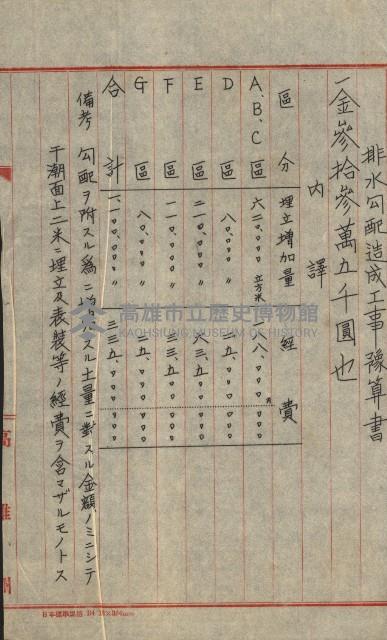 排水勾配造成工事豫算書
一金參拾參萬五千圓也
內譯
區分 埋立増加量 經費
A、B、C區 六二〇、〇〇〇立方米 一八八、〇〇〇円〇〇〇
D區 八〇、〇〇〇〃 二五、〇〇〇〇〇〇
E區 二一〇、〇〇〇〃 六三、五〇〇〇〇〇
F區 一一〇、〇〇〇〃 三三、五〇〇〇〇〇
G區 八〇、〇〇〇〃 二五、〇〇〇〇〇〇
合計 一、一〇〇、〇〇〇〃 三三五、〇〇〇〇〇〇
備考 勾配ヲ附スル為ニ増加スル土量ニ對スル金額ノミニシテ
干潮面上二米ニ埋立及表裝等ノ經費ヲ含マザルモノトス
高雄州
高雄市立歷史博物館
KAOHSIUNG MUSEUM OF HISTORY
日本標準規格 B4